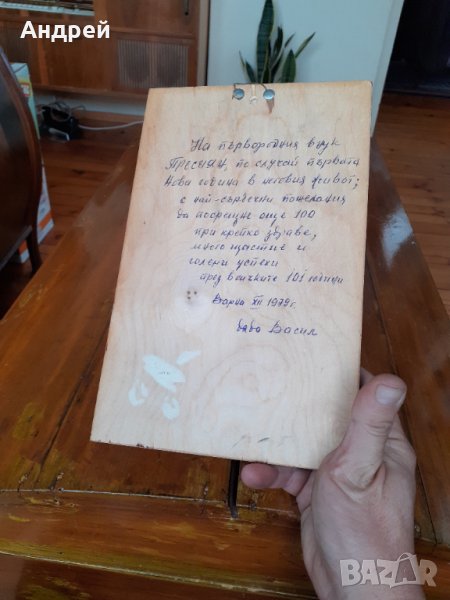 Андрей
На първородния внук
ПРЕСИЯН, по случай първата
Нова година в неговия живот;
с най-сърдечни пожелания
да посрещне още 100
при крепко здраве,
много щастие и
големи успехи
през всичките 101 години
Варна XII 1979 г.
дядо Васил
BAZAR